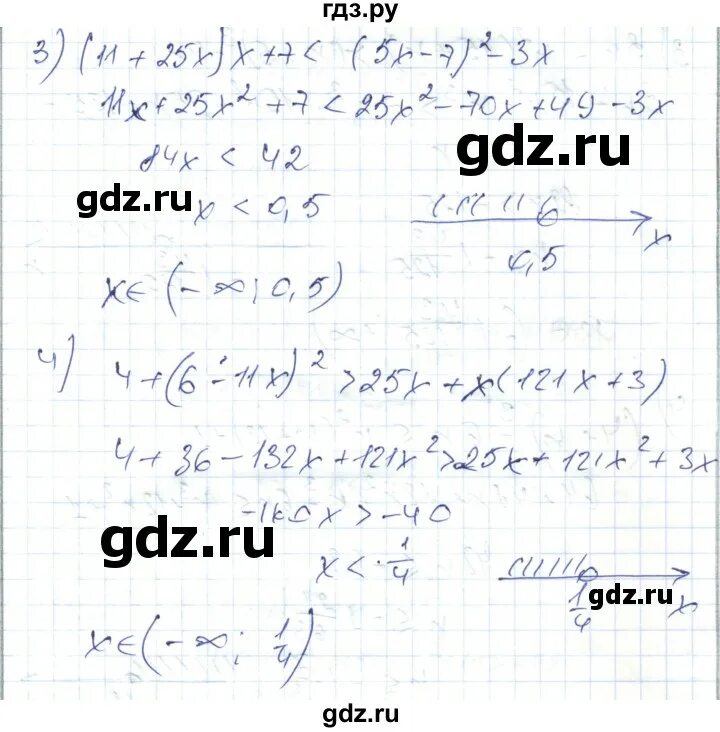 гдз.ру
3) (11 + 25x) x + 7 < (5x - 7)² - 3x
11x + 25x² + 7 < 25x² - 70x + 49 - 3x
gdz.ru
84x < 42
gdz.ru
x < 0,5
x
0,5
x ∈ (-∞; 0,5)
4) 4 + (6 - 11x)² > 25x + x(121x + 3)
4 + 36 - 132x + 121x² > 25x + 121x² + 3x
-160x > -40
gdz.ru
x < 1/4
gdz.ru
1/4 x
x ∈ (-∞; 1/4)
gdz.ru